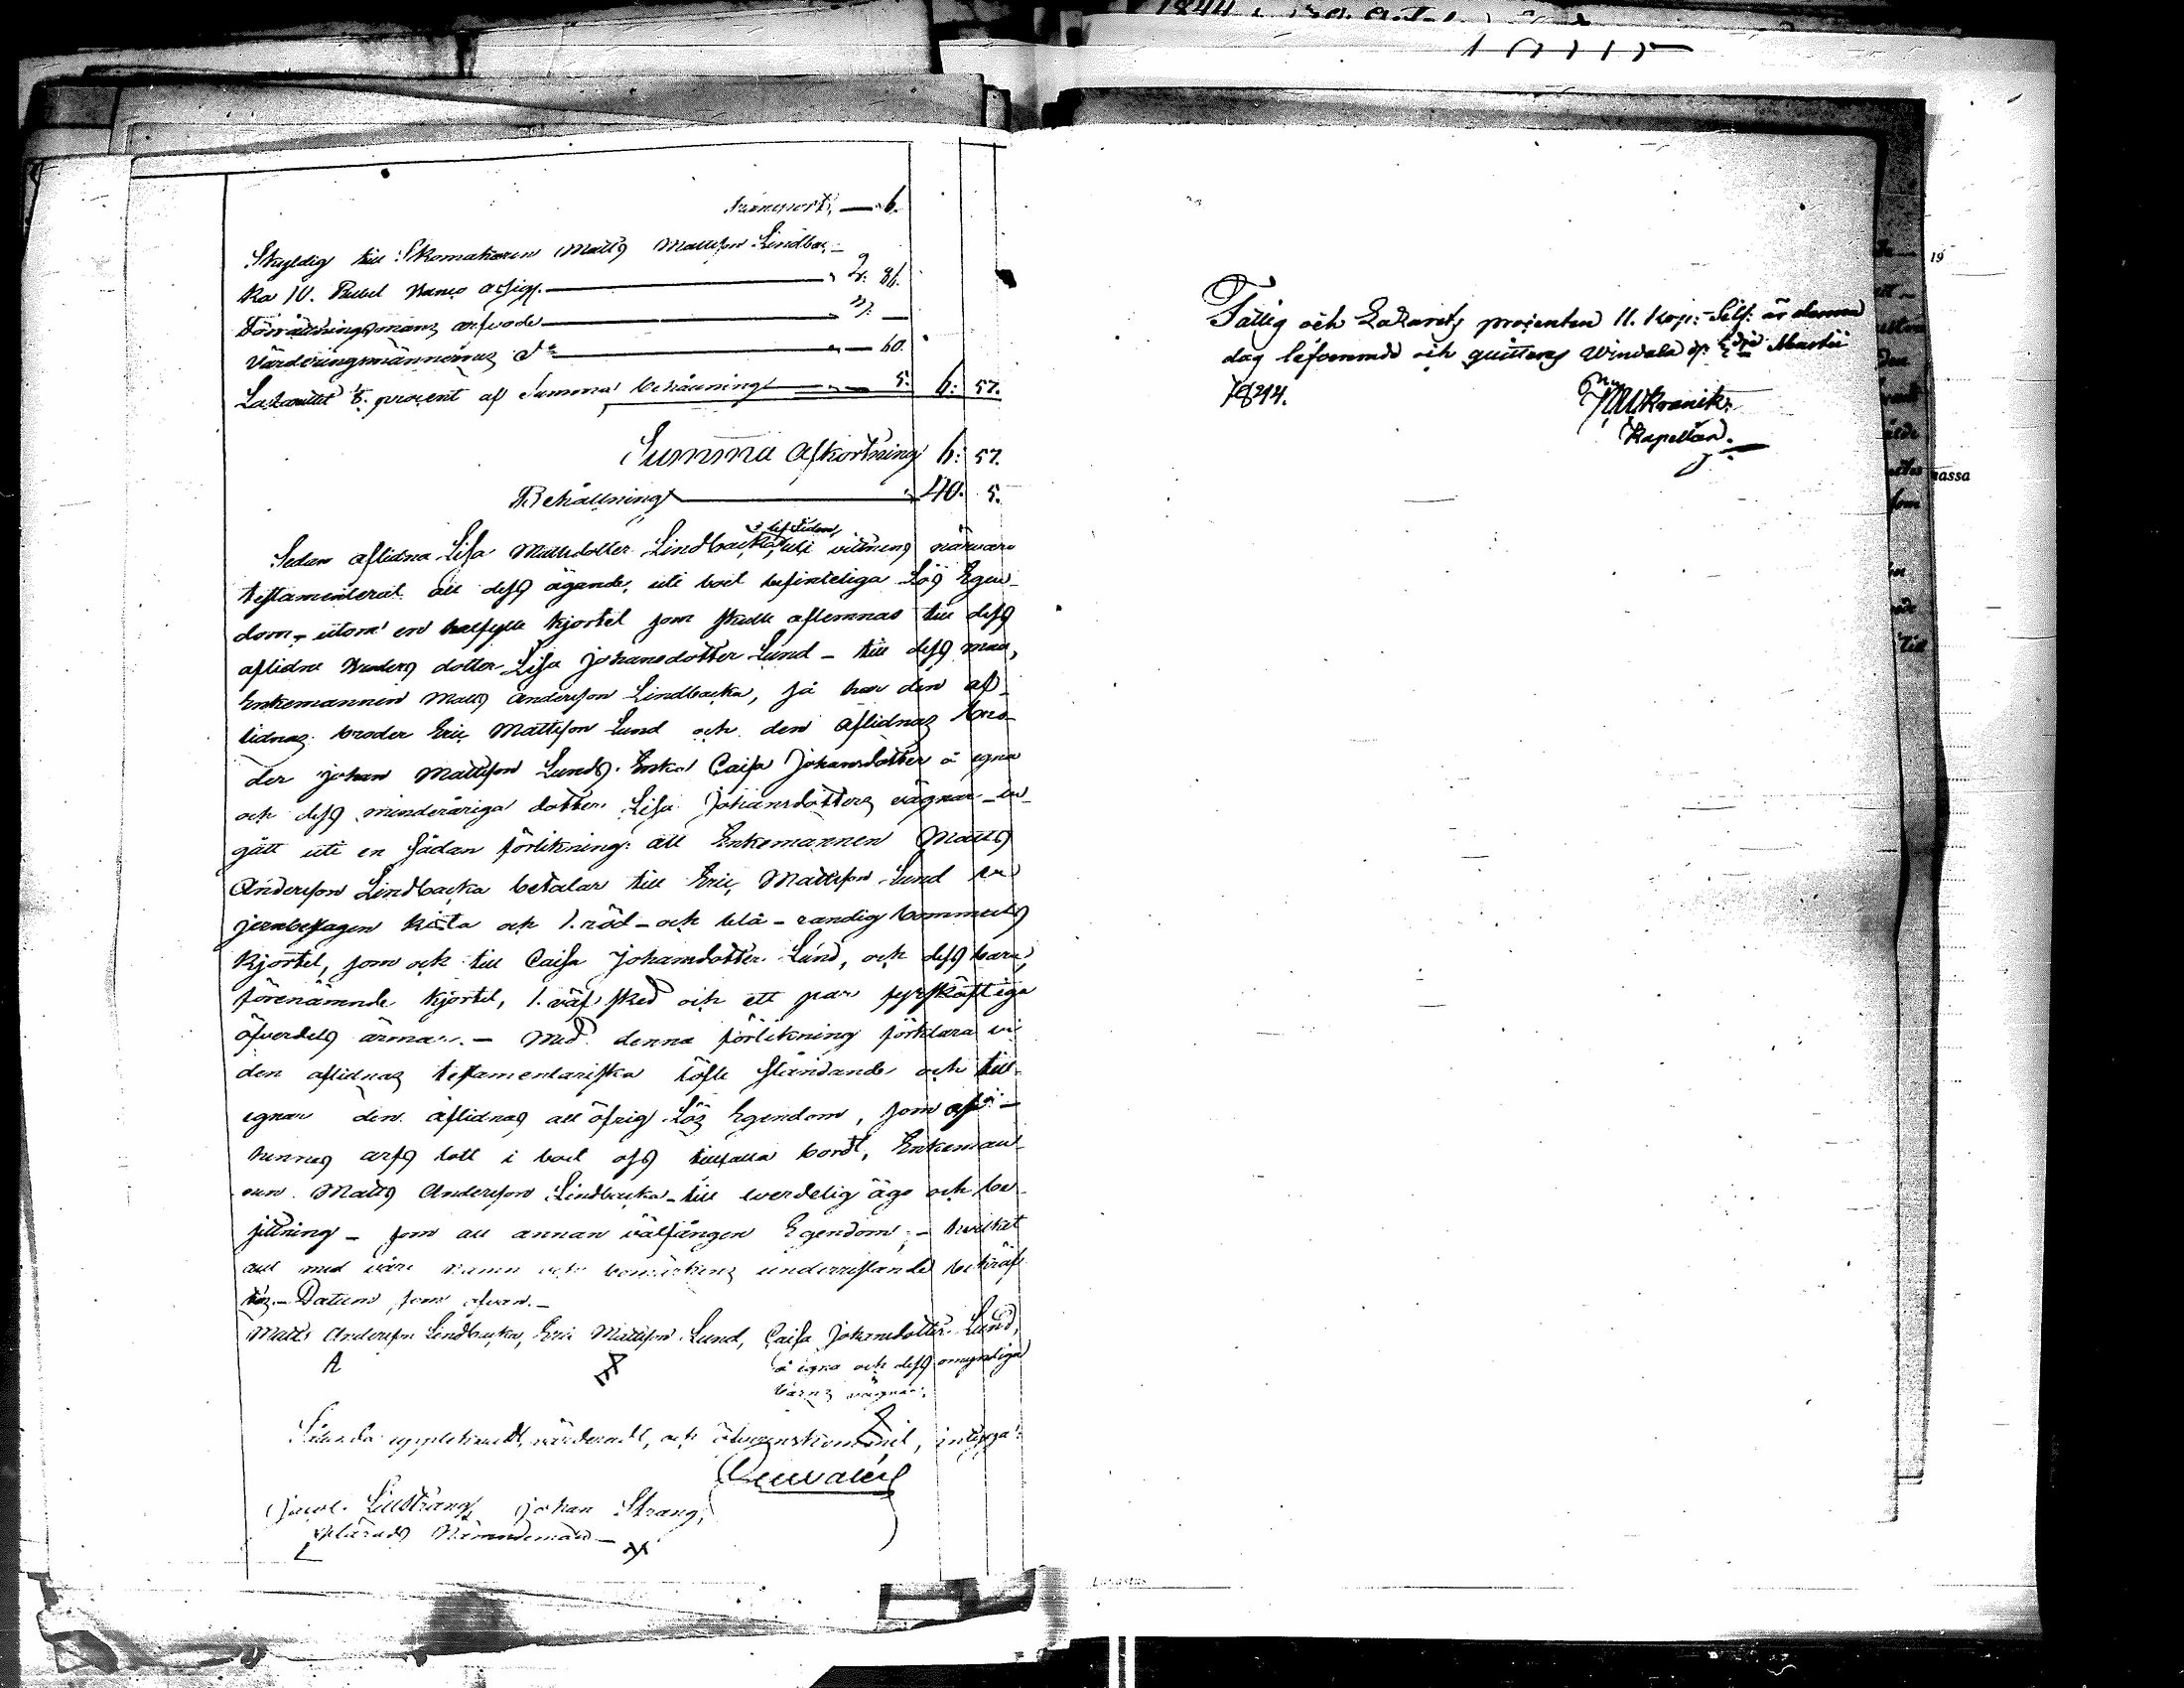 Transport, — 6.
Skyldig till Skomakaren Matts Mattsson Lindbac-
ka 10. Rubel Banco assign. — " 2: 86.
Förrättningsmans arfvode — " 3: —
Värderingsmännernas do — " — 60.
Lazarettet ⅛ procent af Summa behållning — " — 5. 6: 57.
Summa Afkortning 6: 57.
Behållning — " 40. 5.
Sedan aflidna Lisa Mattsdotter Lindbacka uti vittnens närvaro
testamenterat all dess ägande, uti boet befinteliga Lös Egen-
dom, utom en halfylle kjortel som skulle aflemnas till dess
aflidne Broders dotter Lisa Johansdotter Lund - till dess man,
Enkemannen Matts Andersson Lindbacka, så har den af-
lidnas broder Eric Mattsson Lund och den aflidnas bro-
der Johan Mattsson Lunds Enka Caisa Johansdotter å egna
och dess minderåriga dotter Lisa Johansdotters vägnar in-
gått uti en sådan förlikning: att Enkemannen Matts
Andersson Lindbacka betalar till Eric Mattsson Lund en
jernbeslagen kista och 1. röd- och blå-randig bommulls
kjortel, som och till Caisa Johansdotter Lund, och dess barn,
förenämnde kjortel, 1. väf sked och ett par fyrskäftiga
öfverdels ärmar. - Med denna förlikning förklara vi
den aflidnas testamentariska löfte ståndande och till-
egnar den aflidnas all öfrig Lös Egendom, som
hennes arfs lott i boet oss tillfalla bordt, Enkeman-
nen Matts Andersson Lindbacka - till everdelig ägo och be-
sittning - som all annan välfången Egendom; - hvilket
allt med våre namn och bomärkens underristande bekräf-
tas. - Datum som ofvan. -
Matts Andersson Lindbacka, Eric Mattsson Lund, Caisa Johansdotter Lund,
å egna och dess omyndiga
barns vägnar.
Sålunda upptecknadt, värderadt, och öfverenskommit, intyga:
Jacob Lillstrang, Johan Strang,
Nämndeman
Fattig och Lazaretts procenten 11. Kop: Silf: är denna
dag lefvererade och quitteras Windala d.
1844.
Kapellan.
19
massa